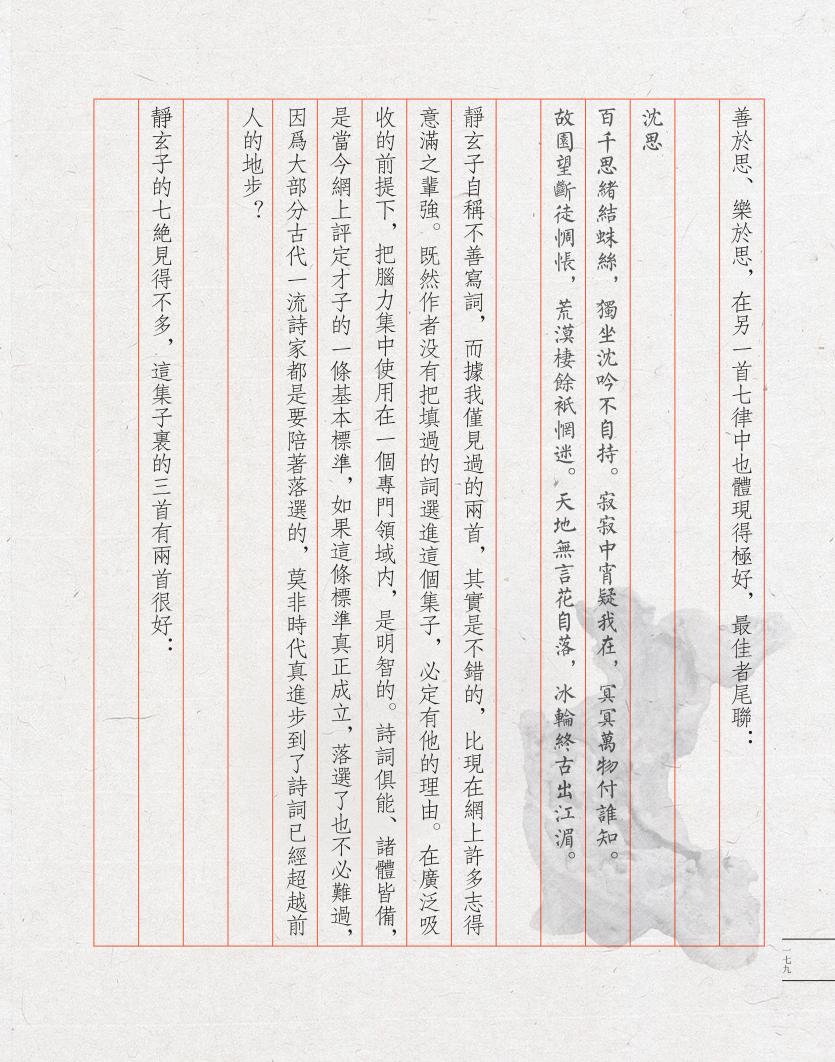 善於思、樂於思，在另一首七律中也體現得極好，最佳者尾聯：
沈思
百千思緒結蛛絲，獨坐沈吟不自持。寂寂中宵疑我在，冥冥萬物付誰知。
故園望斷徒惆悵，荒漠棲餘祇惘迷。天地無言花自落，冰輪終古出江湄。
靜玄子自稱不善寫詞，而據我僅見過的兩首，其實是不錯的，比現在網上許多志得
意滿之輩強。既然作者没有把填過的詞選進這個集子，必定有他的理由。在廣泛吸
收的前提下，把腦力集中使用在一個專門領域内，是明智的。詩詞俱能、諸體皆備，
是當今網上評定才子的一條基本標準，如果這條標準真正成立，落選了也不必難過，
因爲大部分古代一流詩家都是要陪著落選的，莫非時代真進步到了詩詞已經超越前
人的地步？
靜玄子的七絶見得不多，這集子裏的三首有兩首很好：
一七九